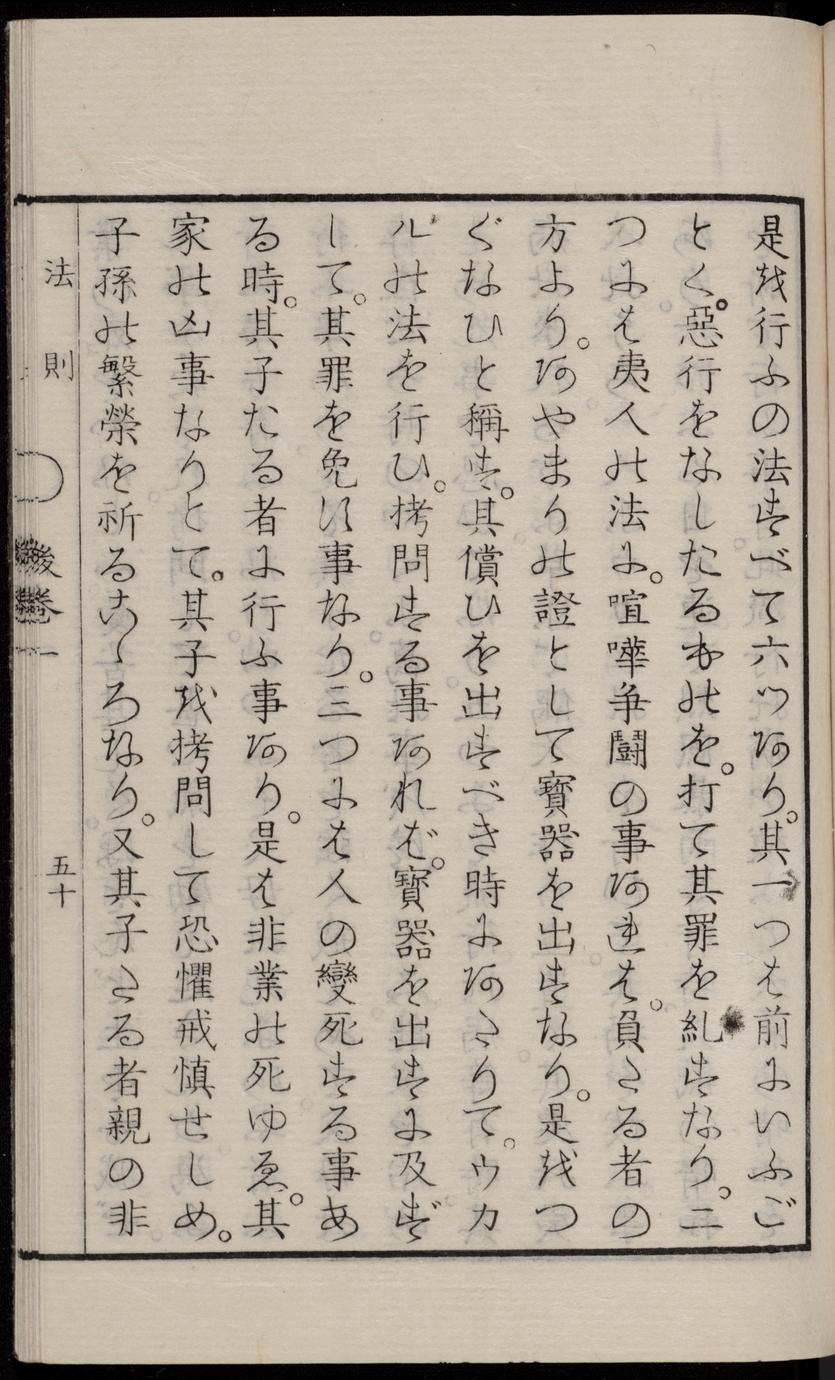 是を行ふの法すべて六ツあり。其一つは前にいふご
とく。惡行をなしたるものを。打て其罪を糺すなり。二
つには夷人の法に。喧嘩爭鬪の事あれは。負たる者の
方より。あやまりの證として寳器を出すなり。是をつ
ぐなひと稱す。其償ひを出すべき時にあたりて。ウカ
ルの法を行ひ。拷問する事あれば。寳器を出すに及ず
して。其罪を免す事なり。三つには人の變死する事あ
る時。其子たる者に行ふ事あり。是は非業の死ゆゑ。其
家の凶事なりとて。其子を拷問して恐懼戒愼せしめ。
子孫の繁榮を祈るこゝろなり。又其子たる者親の非
法則
後卷一
五十